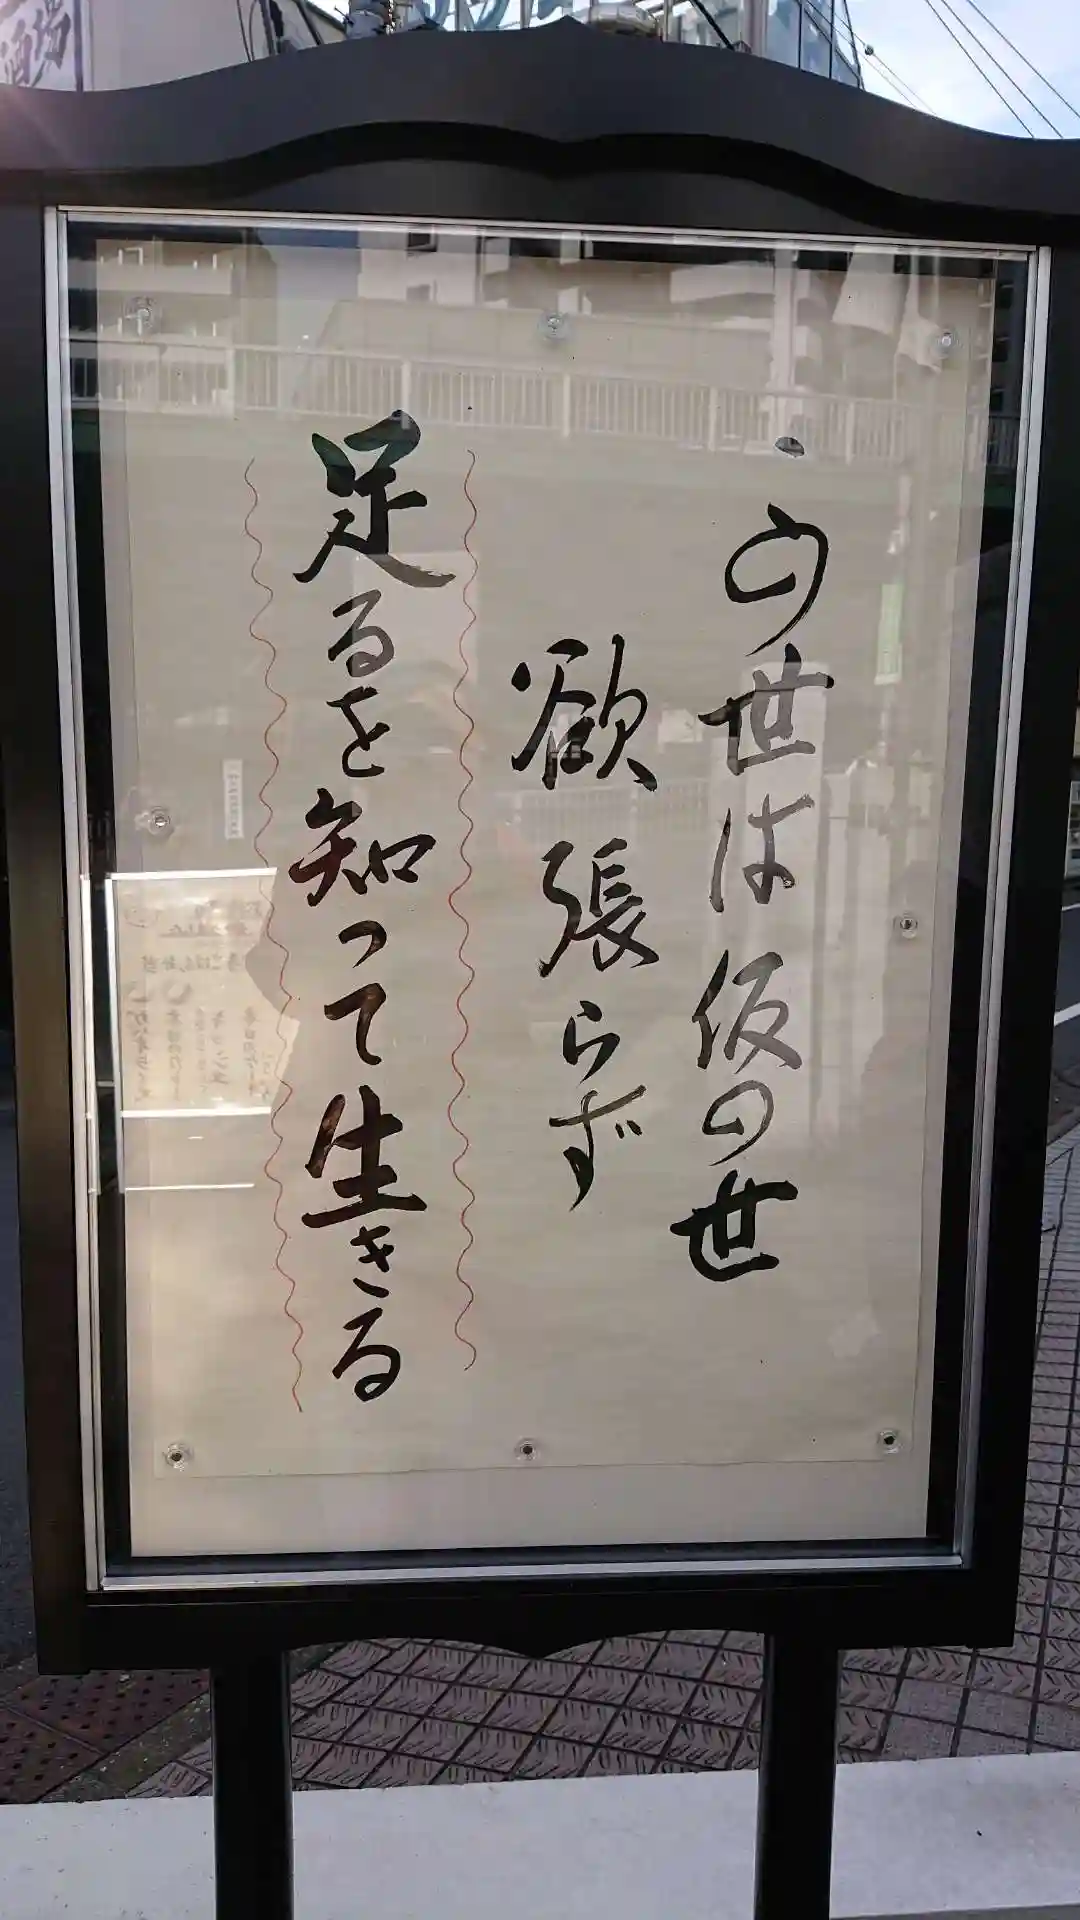 この世は仮の世
欲張らず
足るを知って生きる
酒場